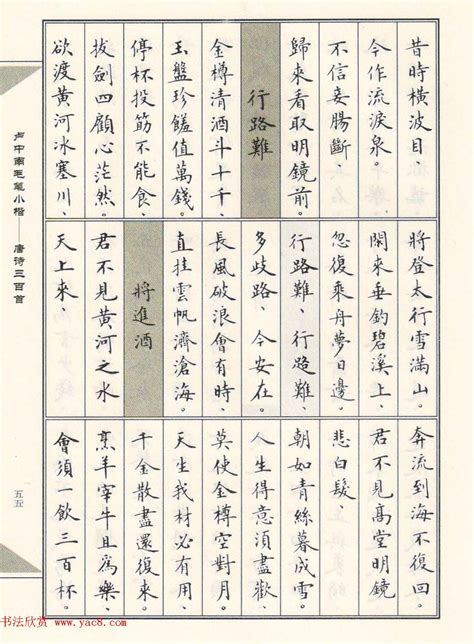 昔時横波目、
今作流淚泉。
不信妾腸斷、
歸來看取明鏡前。
行路難
金樽清酒斗十千、
玉盤珍饈值萬錢。
停杯投筯不能食、
拔劍四顧心茫然。
欲渡黄河冰塞川、
將登太行雪滿山。
閑來垂釣碧溪上、
忽復乘舟夢日邊。
行路難、行路難、
多歧路、今安在。
長風破浪會有時、
直挂雲帆濟滄海。
將進酒
君不見黄河之水
天上來、
奔流到海不復回。
君不見高堂明鏡
悲白髮、
朝如青絲暮成雪
人生得意須盡歡、
莫使金樽空對月。
天生我材必有用、
千金散盡還復來。
烹羊宰牛且爲樂、
會須一飲三百杯。
卢中南毛笔小楷——唐诗三百首
五五
书法欣赏 www.yac8.com